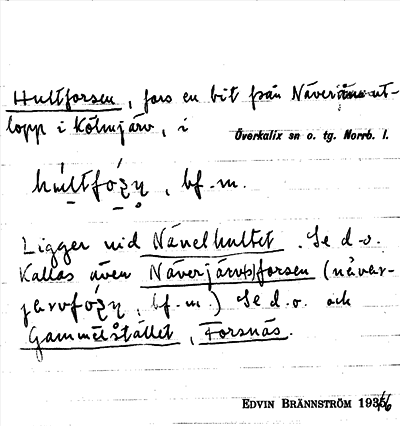 Hultforsen, fors en bit från Näveråns ut-
lopp i Kölmjärv, i
Överkalix sn o. tg. Norrb. l.
hu̱ltfóʒn̥, bf. m.
Ligger vid Nävelhultet. Se d.o.
Kallas även Näverjärv(s)forsen (nåvar-
jarvfóʒn̥, bf. m.) Se d.o. och
Gammelstället, Forsnäs.
EDVIN BRÄNNSTRÖM 1935/6